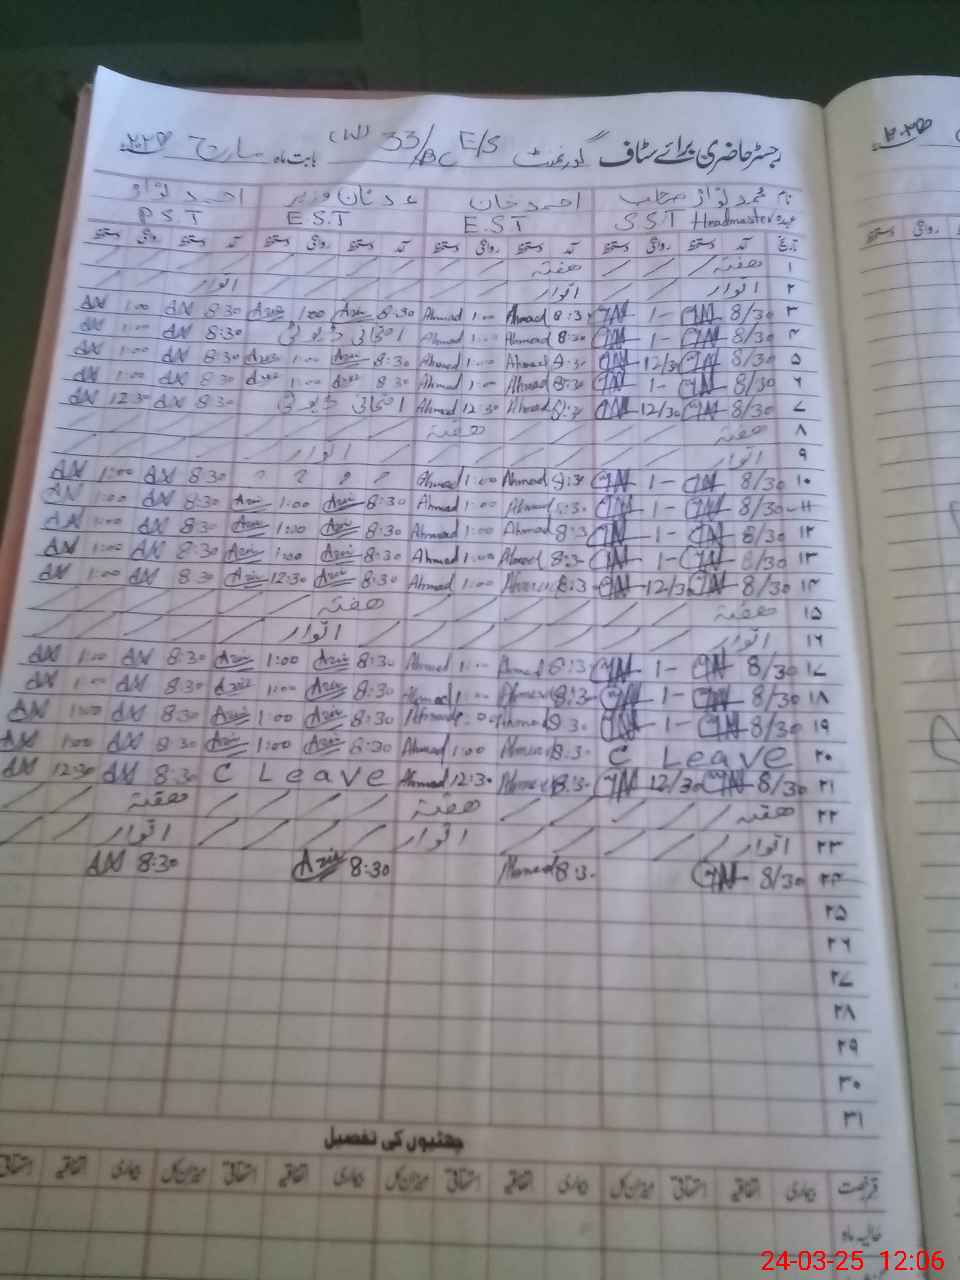 رجسٹر حاضری برائے سٹاف گورنمنٹ E/S 33/BC (W) بابت ماہ مارچ ۲۰۲۵
نام محمد نواز صاحب احمد خان عدنان وزیر احمد نواز
عہدہ SST Headmaster E.S.T E.S.T P.S.T
تاریخ آمد دستخط روانگی دستخط آمد دستخط روانگی دستخط آمد دستخط روانگی دستخط آمد دستخط
۱ ہفتہ ہفتہ
۲ اتوار اتوار اتوار
۳ 8/30 1- 8:3 Ahmad 1:00 Ahmad 8:30 Azir 1:00 Azir 8:30 AN 1:00 AN
۴ 8/30 1- 8:30 Ahmad 1:00 Ahmad 8:30 AN 1:00 AN
۵ 8/30 12/30 8:30 Ahmad 1:00 Ahmad 8:30 Azir 1:00 Azir 8:30 AN 1:00 AN
۶ 8/30 1- 8:30 Ahmad 1:00 Ahmad 8:30 Azir 1:00 Azir 8:30 AN 1:00 AN
۷ 8/30 12/30 Ahmad 12:30 Ahmad 8:30 AN 12:30 AN
۸ ہفتہ ہفتہ
۹ اتوار اتوار
۱۰ 8/30 1- 8:30 Ahmad 1:00 Ahmad 8:30 AN 1:00 AN
۱۱ 8/30 1- 8:30 Ahmad 1:00 Ahmad 8:30 Azir 1:00 Azir 8:30 AN 1:00 AN
۱۲ 8/30 1- 8:3 Ahmad 1:00 Ahmad 8:30 Azir 1:00 Azir 8:30 AN 1:00 AN
۱۳ 8/30 1- 8:3 Ahmad 1:00 Ahmad 8:30 Azir 1:00 Azir 8:30 AN 1:00 AN
۱۴ 8/30 12/30 8:3 Ahmad 1:00 Ahmad 8:30 Azir 12:30 Azir 8:30 AN 1:00 AN
۱۵ ہفتہ ہفتہ
۱۶ اتوار اتوار
۱۷ 8/30 1- 8:3 Ahmad 1:00 Ahmad 8:30 Azir 1:00 Azir 8:30 AN 1:00 AN
۱۸ 8/30 1- 8:3 Ahmad 1:00 Ahmad 8:30 Azir 1:00 Azir 8:30 AN 1:00 AN
۱۹ 8/30 1- 8:30 Ahmad Ahmad 8:30 Azir 1:00 Azir 8:30 AN 1:00 AN
۲۰ C Leave 8:30 Ahmad 1:00 Ahmad 8:30 Azir 1:00 Azir 8:30 AN 1:00 AN
۲۱ 8/30 12/30 8:30 Ahmad 12:30 Ahmad C Leave 8:30 AN 12:30 AN
۲۲ ہفتہ ہفتہ ہفتہ
۲۳ اتوار اتوار اتوار
۲۴ 8/30 8:3 Ahmad 8:30 Azir 8:30 AN
۲۵
۲۶
۲۷
۲۸
۲۹
۳۰
۳۱
چھٹیوں کی تفصیل
قسم رخصت بیماری اتفاقیہ استحقاقی میزان کل بیماری اتفاقیہ استحقاقی میزان کل بیماری اتفاقیہ استحقاقی میزان کل بیماری اتفاقیہ استحقاقی
حالیہ ماہ
24-03-25 12:06